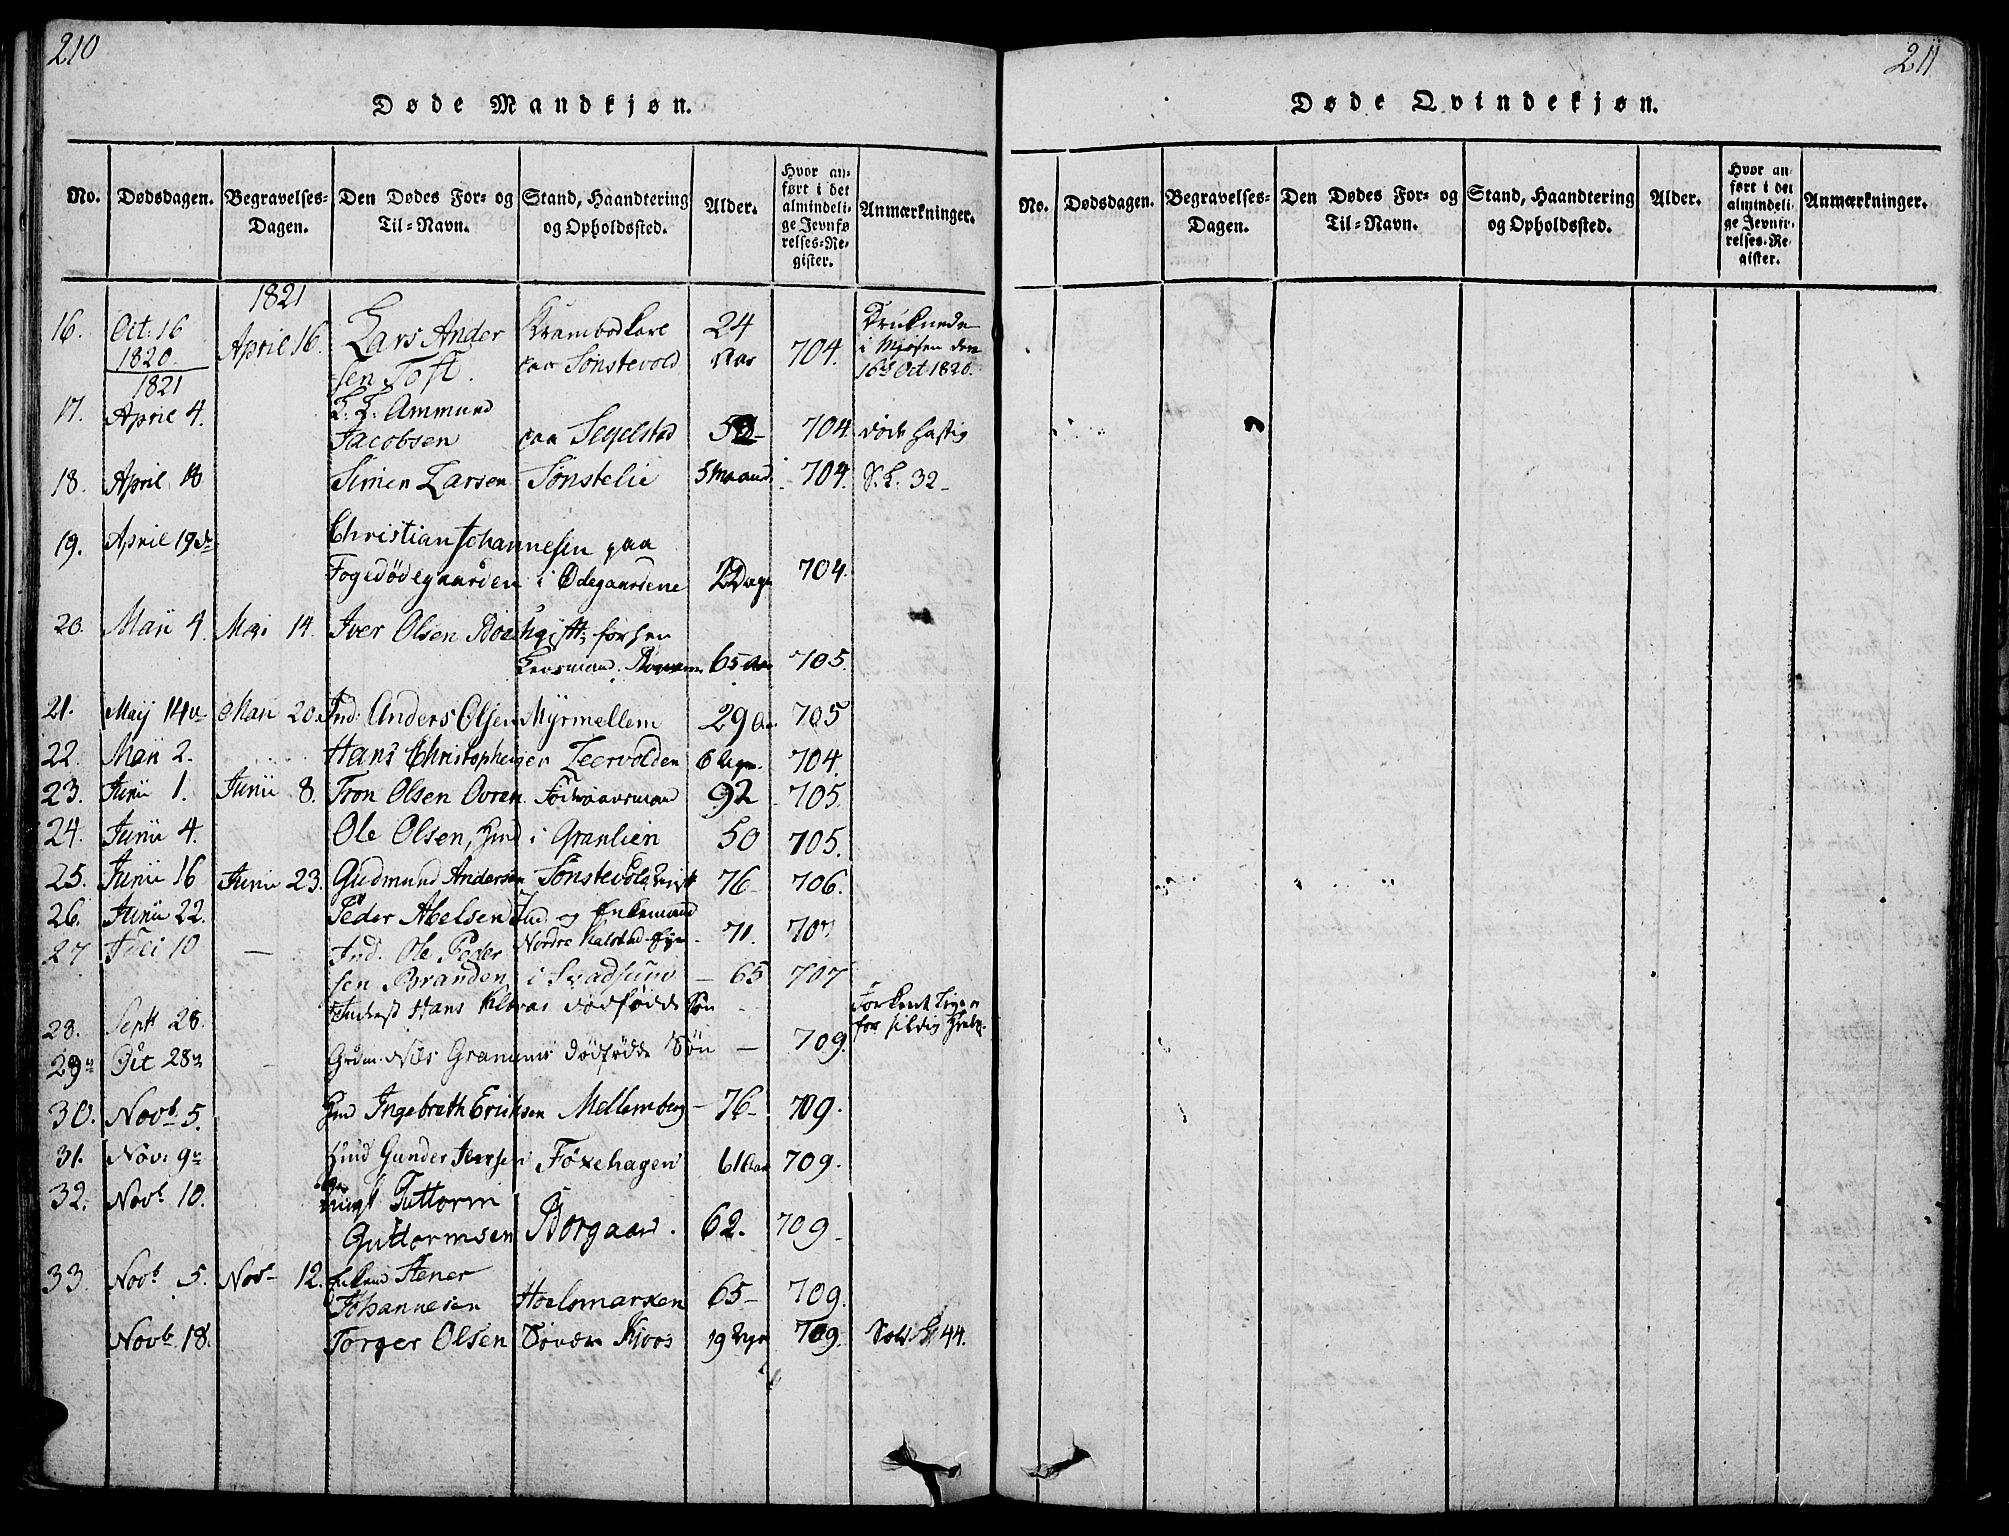 210
Døde Mandkjøn.
No. Dødsdagen. Begravelses-Dagen. Den Dødes For- og Til-Navn. Stand, Haandtering og Opholdssted. Alder. Hvor anført i det almindelige Jevnførelses-Register. Anmærkninger.
1821
16. Oct: 16 1820 April 16. Lars Andersen Toft. Krambodkarl paa Sønstevold 24 Aar 704. Druknede i Mjøsen den 16d Oct 1820.
1821
17. April 4. L. L. Ammund Jacobsen paa Segelstad 704. døde hastig
18. April 18 Simen Larsen Sønstelie 5 Maand. 704. S. L. 32
19. April 19de Christian Johannesen paa Fogedødegaarden i Ødegaardene 2 Dage 704.
20. Maii 4. Mai 14. Iver Olsen gift, forhen 65 Aar 705.
21. Maij 14 Maii 20 Ind: Anders Olsen Myrmellem 29 Aar 705
22. Maii 2. Hans Christophersen Leervolden 6 Uger. 704.
23. Junii 1. Junii 8. Tron Olsen Ovren Føderaadsmand 92 705.
24. Junii 4. Ole Olsen, Hmd i Granlien 50 705.
25. Junii 16 Junii 23. Gudmund Andersen Sønstevold gift 76 706.
26. Junii 22. Peder Abelsen Ind og Enkemand Nordre Kalstad 71. 707
27 Juli 10 — Ind. Ole Pedersen Branden i Svadsum — 65 707
28. Sept 28. Inderst Hans dødfødde Søn - Forkeert Lejen for sildig Hielp.
29 Oct 28 - Grdm. Nils dødfødde Søn — 709.
30. Novb 5. Hmd Ingebreth Eriksen Mellemberg 76 709.
31. Nov: 9 Hmd Gunder Iversen Foxehagen 61 Aar 709.
32. Novb 10. Guttorm Guttormsen Borgaard. 62. 709
33. Novb 5. Novb 12. Enkemd Stener Johannesen Hoelsmarken 65 709.
Novb 18. Torger Olsen Søndre Kioos 19 Uger 709.
211
Døde Qvindekjøn.
No. Dødsdagen. Begravelses-Dagen. Den Dødes For- og Til-Navn. Stand, Haandtering og Opholdssted. Alder. Hvor anført i det almindelige Jevnførelses-Register. Anmærkninger.